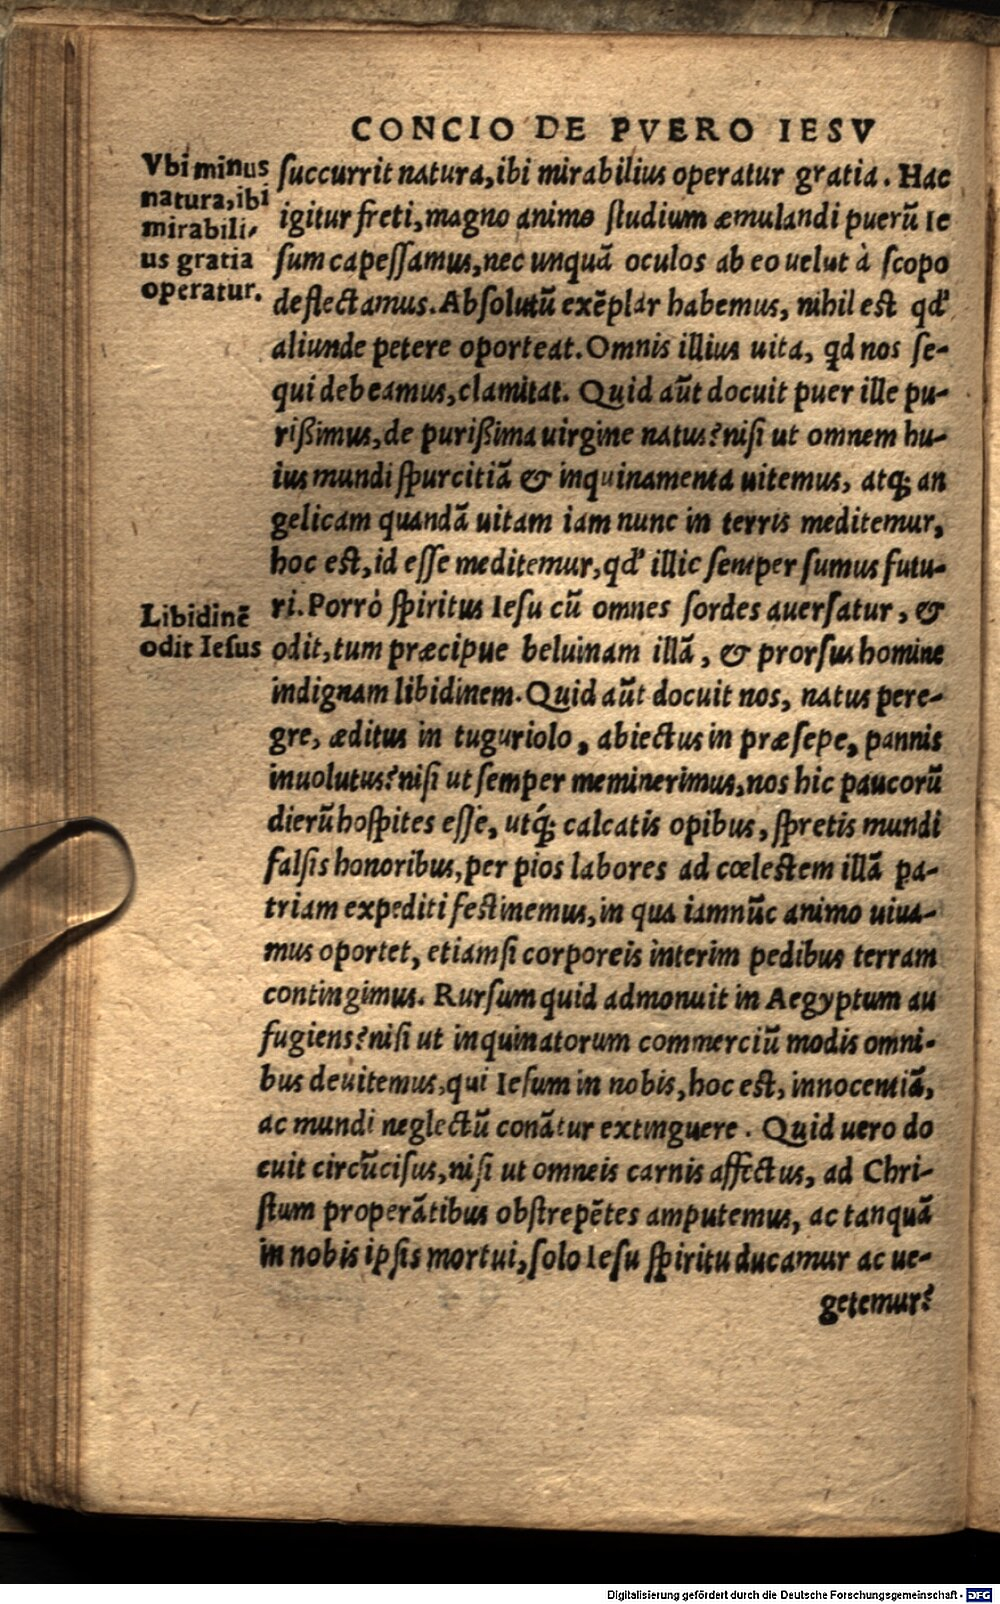 CONCIO DE PVERO IESV
Vbi minus
natura, ibi
mirabili-
us gratia
operatur.
succurrit natura, ibi mirabilius operatur gratia. Hac
igitur freti, magno animo studium æmulandi puerū Ie
sum capessamus, nec unquā oculos ab eo uelut à scopo
deflectamus. Absolutū exēplar habemus, nihil est qd'
aliunde petere oporteat. Omnis illius uita, qd nos se-
qui debeamus, clamitat. Quid aūt docuit puer ille pu-
rißimus, de purißima uirgine natus? nisi ut omnem hu-
ius mundi spurcitiā & inquinamenta uitemus, atq; an
gelicam quandā uitam iam nunc in terris meditemur,
hoc est, id esse meditemur, qd' illic semper sumus futu-
Libidinē
odit Iesus
ri. Porrò spiritus Iesu cū omnes sordes auersatur, &
odit, tum præcipue beluinam illā, & prorsus homine
indignam libidinem. Quid aūt docuit nos, natus pere-
gre, æditus in tuguriolo, abiectus in præsepe, pannis
inuolutus? nisi ut semper meminerimus, nos hic paucorū
dierū hospites esse, utq́; calcatis opibus, spretis mundi
falsis honoribus, per pios labores ad cœlestem illā pa-
triam expediti festinemus, in qua iamnūc animo uiua-
mus oportet, etiamsi corporeis interim pedibus terram
contingimus. Rursum quid admonuit in Aegyptum au
fugiens? nisi ut inquinatorum commerciū modis omni-
bus deuitemus, qui Iesum in nobis, hoc est, innocentiā,
ac mundi neglectū conātur extinguere. Quid uero do
cuit circūcisus, nisi ut omneis carnis affectus, ad Chri-
stum properātibus obstrepētes amputemus, ac tanquā
in nobis ipsis mortui, solo Iesu spiritu ducamur ac ue-
getemur?
Digitalisierung gefördert durch die Deutsche Forschungsgemeinschaft - DFG